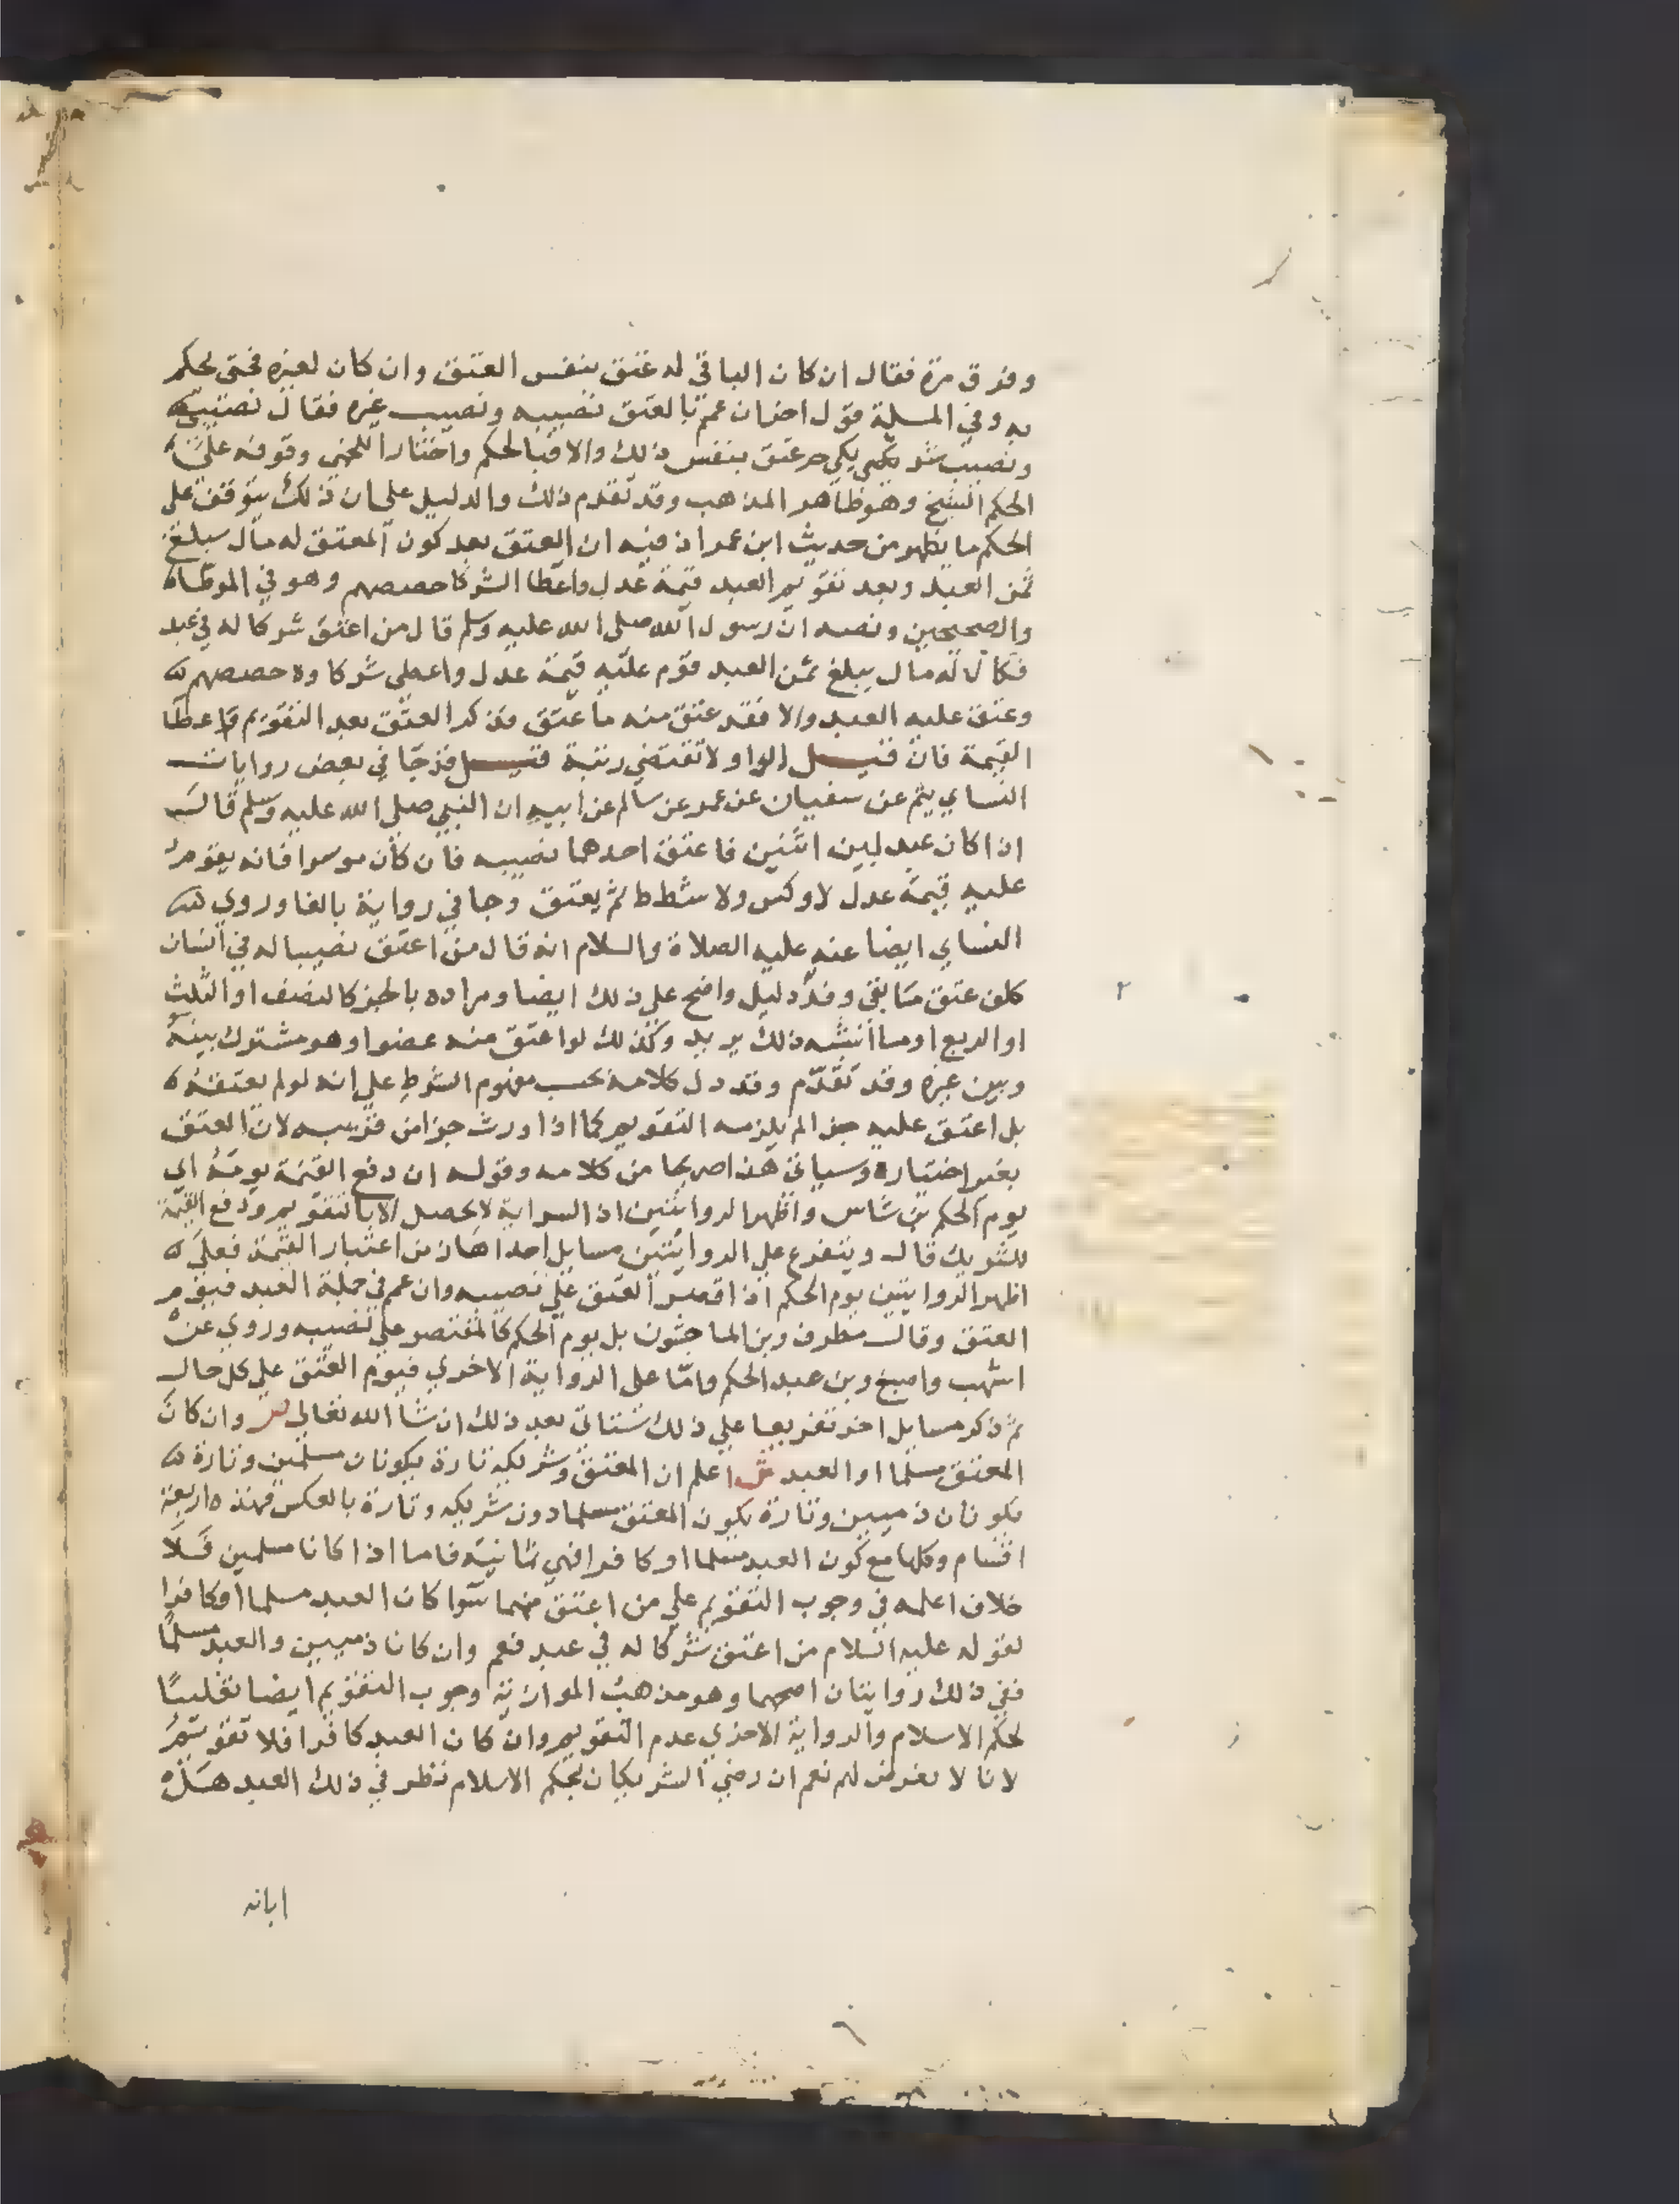 وفرق مرة فقال ان كان الباقي له عتق بنفس العتق وان كان لغيره فحتى يحكم
به وفي المسلة قول اخر ان عمم بالعتق نصيبه ونصيب غيره فقال نصيبي
ونصيب شريكي حر عتق بنفس ذلك والا فبالحكم واختار اللخمي وقوفه على
الحكم الشيخ وهو ظاهر المذهب وقد تقدم ذلك والدليل على ان ذلك يتوقف على
الحكم ما يظهر من حديث ابن عمر اذ فيه ان العتق بعد كون المعتق له مال يبلغ
ثمن العبد وبعد تقويم العبد قيمة عدل واعطا الشركا حصصهم وهو في الموطاه
والصحيحين ونصه ان رسول الله صلى الله عليه وسلم قال من اعتق شركا له في عبد
فكان له مال يبلغ ثمن العبد قوم عليه قيمة عدل واعطي شركاوه حصصهم
وعتق عليه العبد والا فقد عتق منه ما عتق فذكر العتق بعد التقويم واعطا
القيمة فان قيل الواو لا تقتضي رتبة قيل قد جا في بعض روايات
النساي يثم عن سفيان عن عمر عن سالم عن ابيه ان النبي صلى الله عليه وسلم قال
اذا كان عبد بين اثنين فاعتق احدهما نصيبه فان كان موسرا فانه يقوم
عليه قيمة عدل لا وكس ولا شطط ثم يعتق وجا في رواية بالفا وروي
النساي ايضا عنه عليه الصلاة والسلام انه قال من اعتق نصيبا له في انسان
كلف عتق ما بقي وفيه دليل واضح على ذلك ايضا ومراده بالجز كالنصف او الثلث
او الربع او ما اشبه ذلك يريد وكذلك لو اعتق منه عضوا وهو مشترك بينه
وبين غيره وقد تقدم وقد دل كلامه بحسب مفهوم الشرط على انه لو لم يعتقه
بل اعتق عليه جز الم يلزمه التقويم كما اذا ورث جزا من قريبه لان العتق
بغير اختياره وسياتي هذا صريحا من كلامه وقوله ان دفع القيمة يومه اي
يوم الحكم بن شاس واظهر الروايتين ان السراية لا تحصل الا بالتقويم ودفع القيمة
للشريك قال ويتفرع على الروايتين مسايل احداها من اعتبار القيمة فعلي
اظهر الروايتين يوم الحكم اذا اقتصر العتق على نصيبه وان عمم في جملة العبد فيوم
العتق وقال مطرف وبن الماجشون بل يوم الحكم كالمقتصر على نصيبه وروي عن
اشهب واصبغ وبن عبد الحكم واما على الرواية الاخري فيوم العتق على كل حال
ثم ذكر مسايل اخر تفريعا على ذلك ستاتي بعد ذلك ان شا الله تعالى ص وان كان
المعتق مسلما او العبد ش اعلم ان المعتق وشريكه تارة يكونان مسلمين وتارة
يكونان ذميين وتارة يكون المعتق مسلما دون شريكه وتارة بالعكس فهذه اربعة
اقسام وكلها مع كون العبد مسلما او كافرا فهي ثمانية فاما اذا كانا مسلمين فلا
خلاف اعلمه في وجوب التقويم على من اعتق منهما سوا كان العبد مسلما او كافرا
لقوله عليه السلام من اعتق شركا له في عبد فعم وان كانا ذميين والعبد مسلما
ففي ذلك روايتان اصحهما وهو مذهب الموازية وجوب التقويم ايضا تغليبا
لحكم الاسلام والرواية الاخري عدم التقويم وان كان العبد كافرا فلا تقويم
لانا لا نعرض لهم نعم ان رضي الشريكان بحكم الاسلام نظر في ذلك العبد هل
ابانه